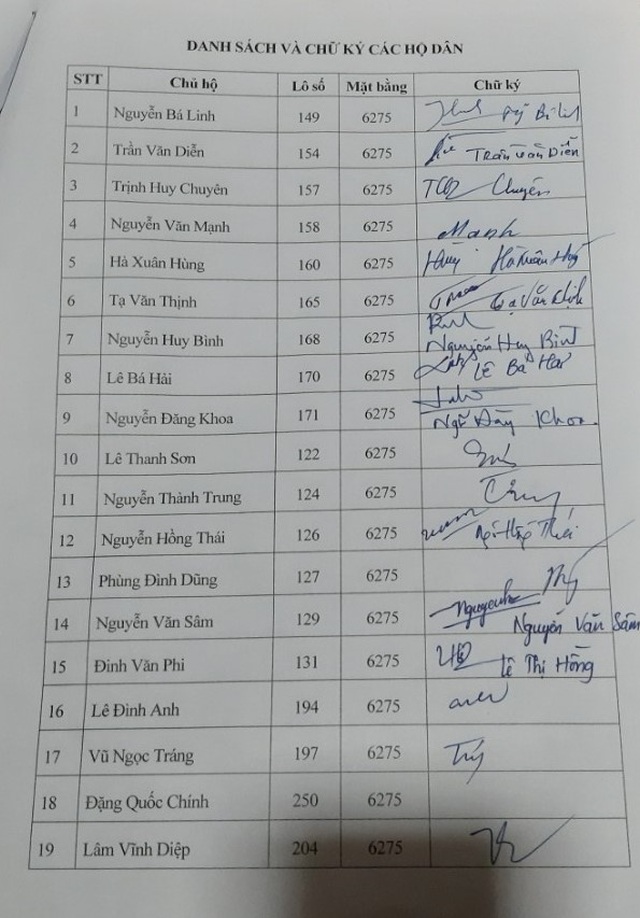 DANH SÁCH VÀ CHỮ KÝ CÁC HỘ DÂN
STT Chủ hộ Lô số Mặt bằng Chữ ký
1 Nguyễn Bá Linh 149 6275
2 Trần Văn Diễn 154 6275 Trần Văn Diễn
3 Trịnh Huy Chuyên 157 6275 Chuyên
4 Nguyễn Văn Mạnh 158 6275 Manh
5 Hà Xuân Hùng 160 6275 Hà Xuân Hùng
6 Tạ Văn Thịnh 165 6275 Tạ Văn Thịnh
7 Nguyễn Huy Bình 168 6275 Nguyễn Huy Bình
8 Lê Bá Hải 170 6275 Lê Bá Hải
9 Nguyễn Đăng Khoa 171 6275 Khoa
10 Lê Thanh Sơn 122 6275
11 Nguyễn Thành Trung 124 6275
12 Nguyễn Hồng Thái 126 6275
13 Phùng Đình Dũng 127 6275
14 Nguyễn Văn Sâm 129 6275 Nguyễn Văn Sâm
15 Đinh Văn Phi 131 6275 Lê Thị Hồng
16 Lê Đình Anh 194 6275
17 Vũ Ngọc Tráng 197 6275
18 Đặng Quốc Chính 250 6275
19 Lâm Vĩnh Diệp 204 6275